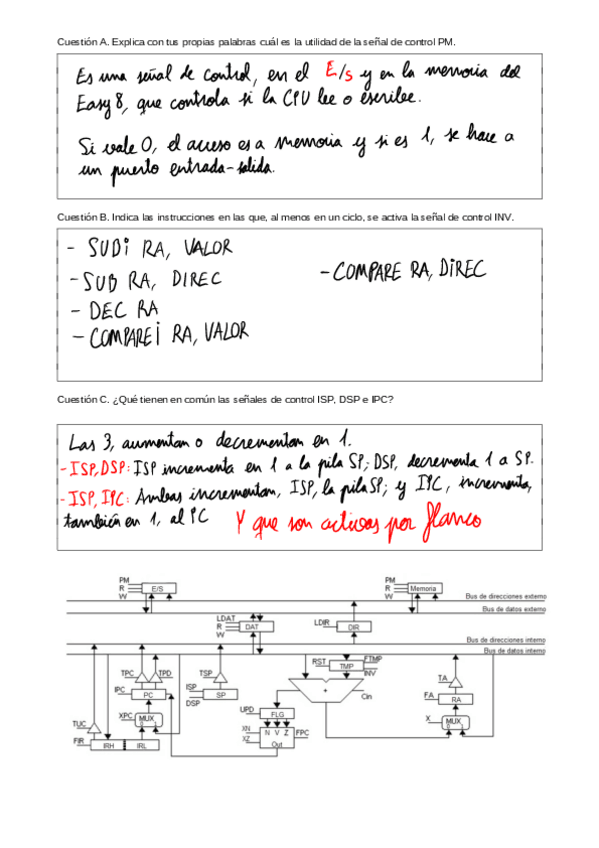 Cuestión A. Explica con tus propias palabras cuál es la utilidad de la señal de control PM.
Es una señal de control, en el E/s y en la memoria del
Easy8, que controla si la CPU lee o escribe.
Si vale 0, el acceso es a memoria y si es 1, se hace a
un puerto entrada-salida.
Cuestión B. Indica las instrucciones en las que, al menos en un ciclo, se activa la señal de control INV.
- SUBi RA, VALOR
- SUB RA, DIREC
- COMPARE RA, DIREC
- DEC RA
- COMPAREi RA, VALOR
Cuestión C. ¿Qué tienen en común las señales de control ISP, DSP e IPC?
Las 3, aumentan o decrementan en 1.
- ISP, DSP: ISP incrementa en 1 a la pila SP; DSP, decrementa 1 a SP.
- ISP, IPC: Ambas incrementan, ISP, la pila SP; y IPC, incrementa,
también en 1, al PC Y que son activas por flanco
PM
R
W
E/S
PM
R
W
Memoria
Bus de direcciones externo
Bus de datos externo
LDAT
R
W
DAT
LDIR
DIR
Bus de direcciones interno
Bus de datos interno
TPC
TPD
TSP
RST
TMP
FTMP
INV
TA
IPC
PC
ISP
DSP
SP
+
Cin
FA
RA
XPC
MUX
0
1
UPD
FLG
X
MUX
0
1
TUC
XN
XZ
N V Z
FPC
FIR
IRH
IRL
Out